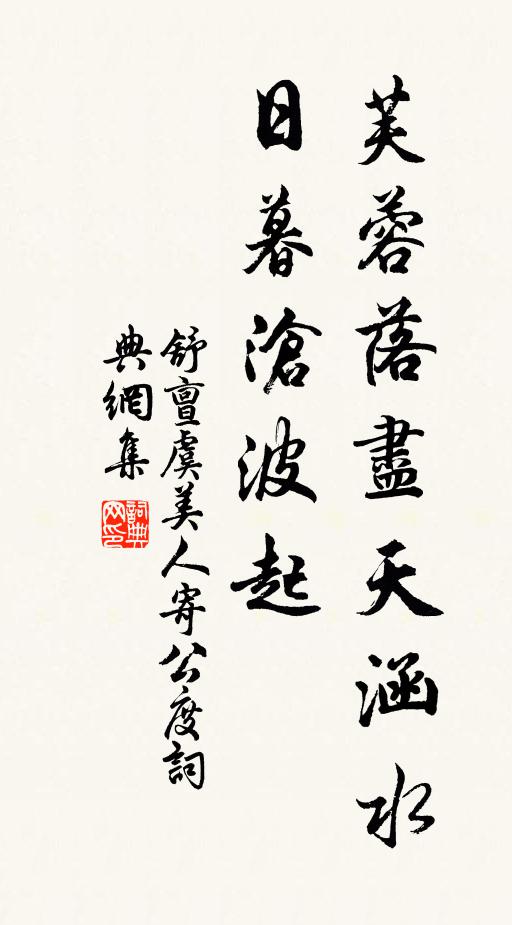 芙蓉落盡天涵水
日暮滄波起
舒亶虞美人寄公度詞
典網集
詞典网印